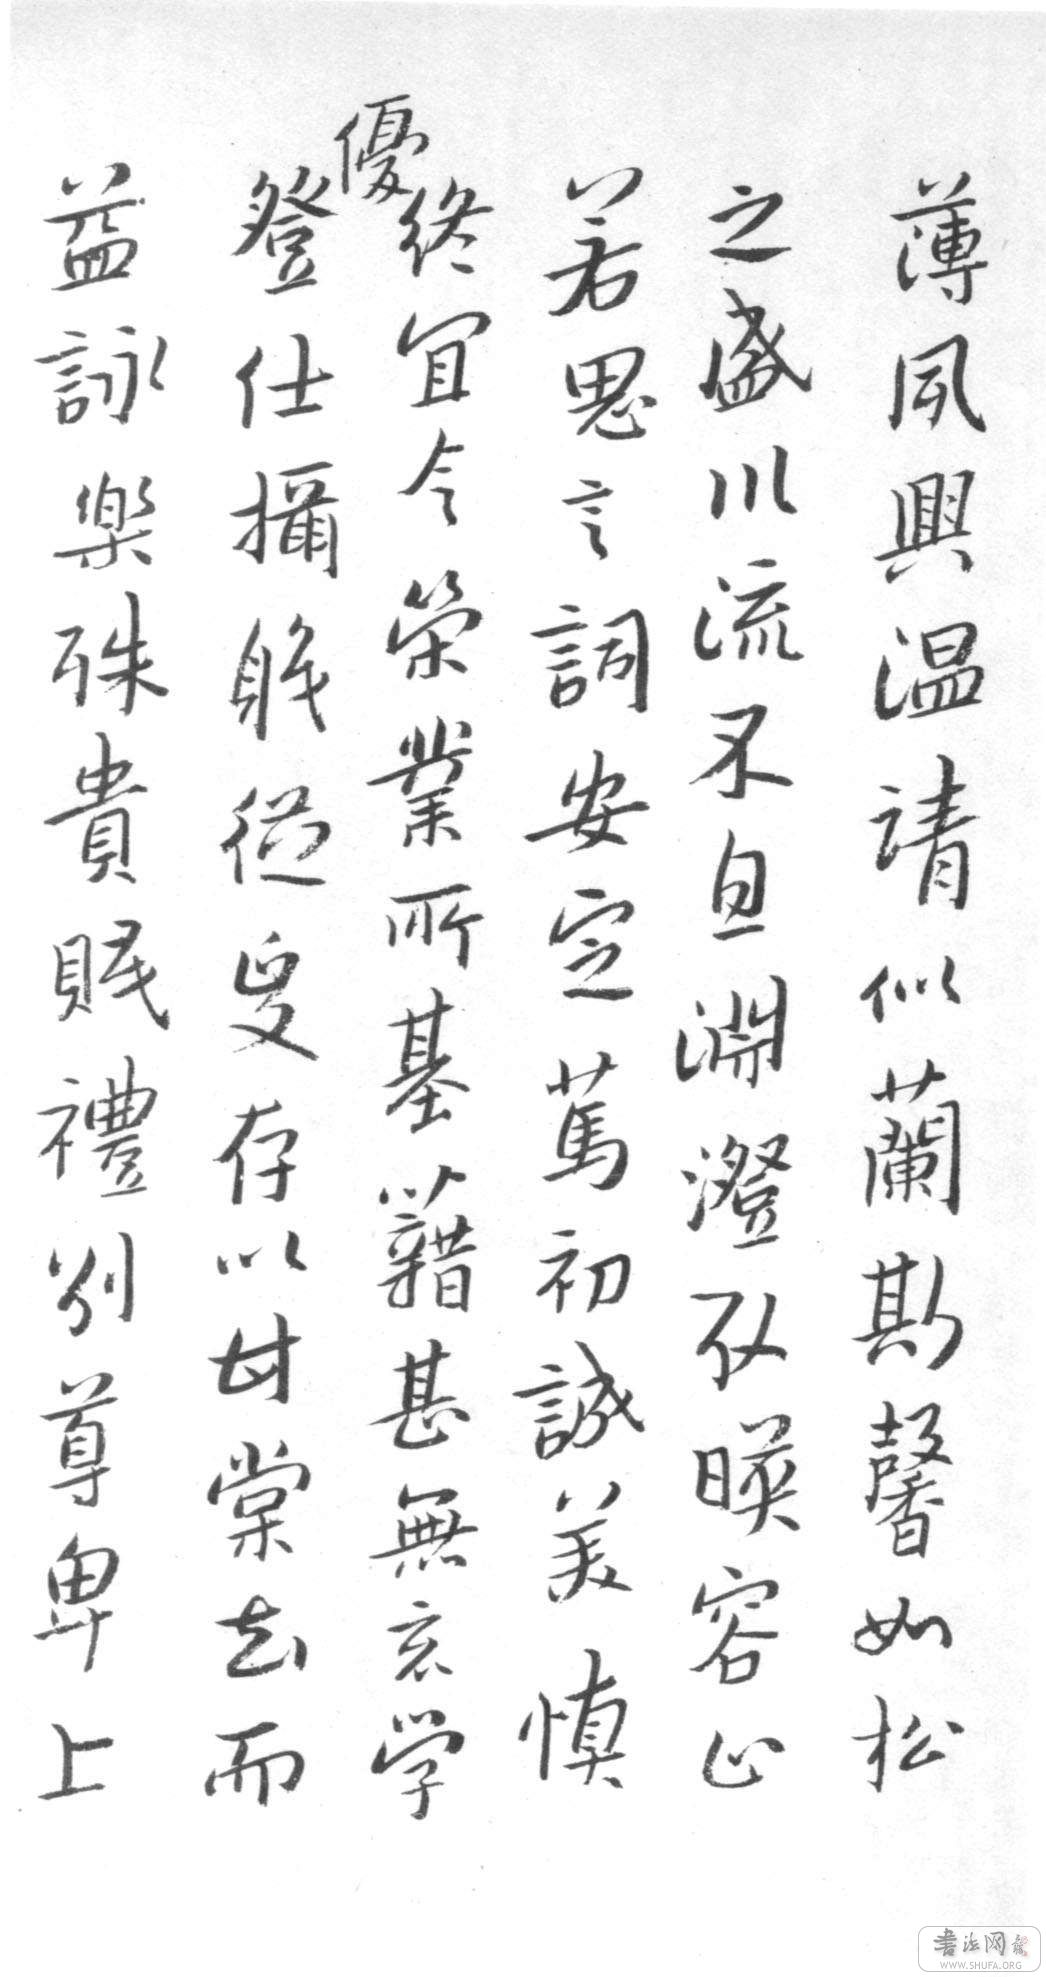 薄夙興温凊似蘭斯馨如松
之盛川流不息淵澄取暎容止
若思言詞安定篤初誠美慎
終宜令榮業所基籍甚無竟学
優
登仕攝職從政存以甘棠去而
益詠樂殊貴賤禮別尊卑上
書法网
WWW.SHUFA.ORG